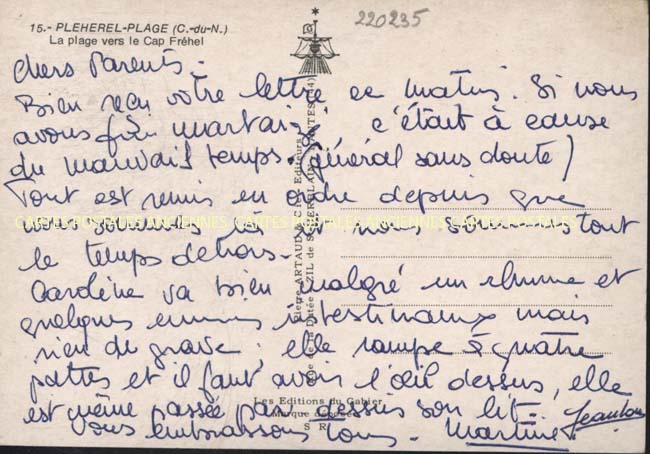 15.- PLEHEREL-PLAGE (C.-du-N.)
La plage vers le Cap Fréhel
220235
Chers Parents.
Bien reçu votre lettre ce matin. Si nous
avons fui c'était à cause
du mauvais temps (général sans doute)
Tout est remis en ordre depuis que
nous sommes là et nous sommes tout
le temps dehors.
Caroline va bien malgré un rhume et
quelques ennuis intestinaux mais
rien de grave ; elle rampe à quatre
pattes et il faut avoir l'œil dessus, elle
est même passée par dessus son lit.
vous embrassons tous. Martine. Jeanlou
CARTES POSTALES ANCIENNES CARTES POSTALES ANCIENNES CARTES POSTALES
Pierre ARTAUD & Cie - Editeurs
ZIL de St HERBLAIN NANTES (44)
Les Editions du Gabier
Marque déposée
S R